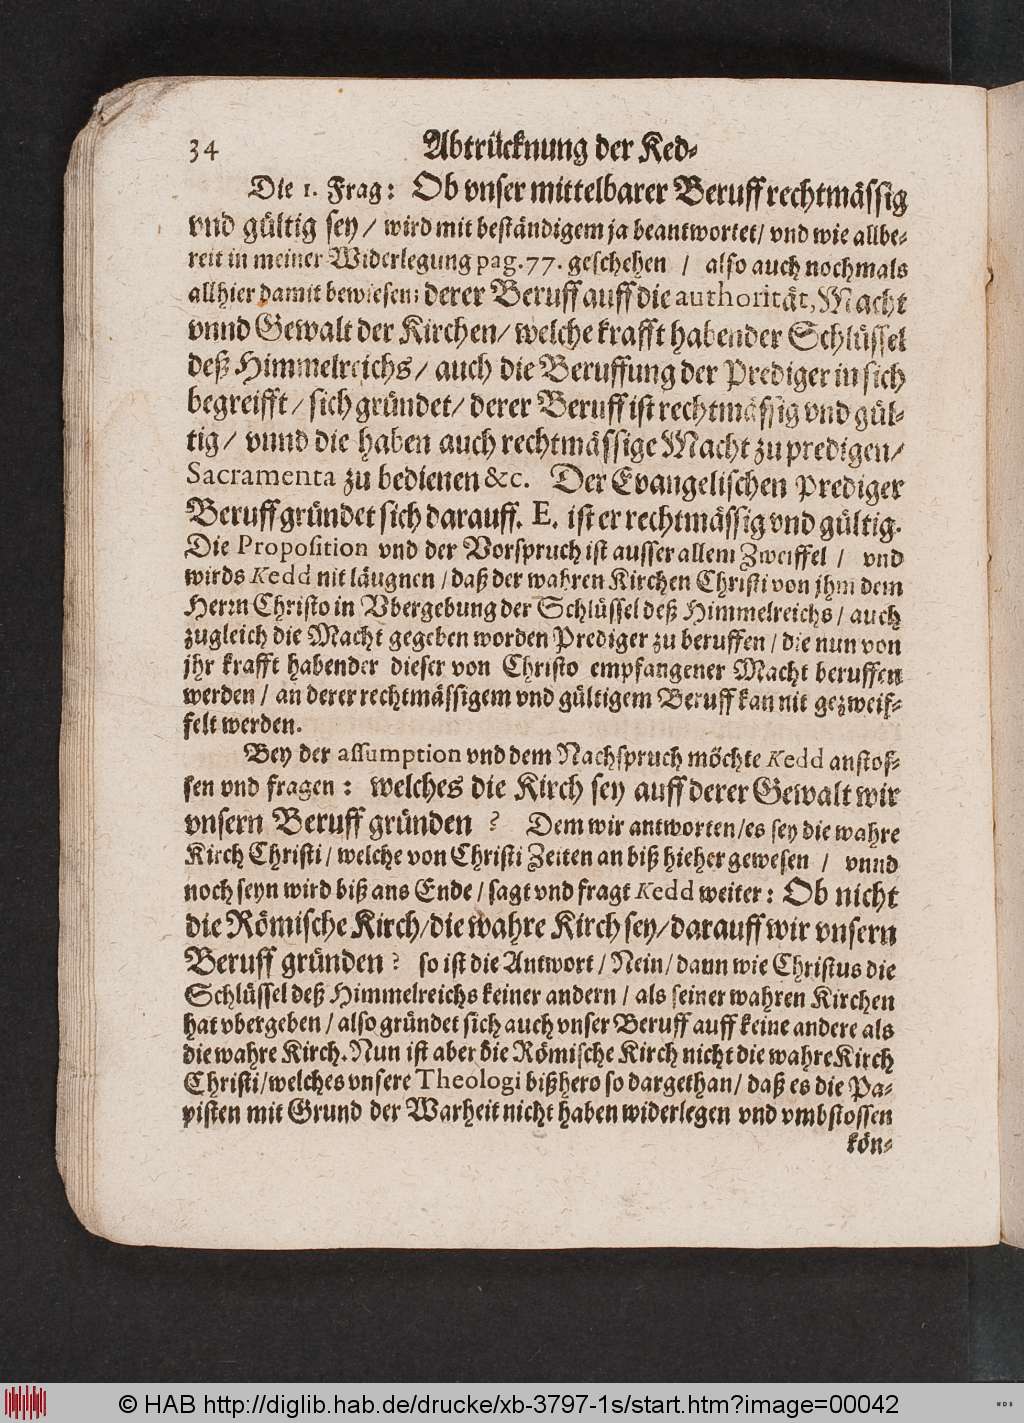 34 Abtrücknung der Ked-
Die 1. Frag: Ob vnser mittelbarer Beruff rechtmässig
vnd gültig sey / wird mit beständigem ja beantwortet / vnd wie allbe-
reit in meiner Widerlegung pag. 77. geschehen / also auch nochmals
allhier damit bewiesen: derer Beruff auff die authorität, Macht
vnnd Gewalt der Kirchen / welche krafft habender Schlüssel
deß Himmelreichs / auch die Beruffung der Prediger in sich
begreifft / sich gründet / derer Beruff ist rechtmässig vnd gül-
tig / vnnd die haben auch rechtmässige Macht zu predigen /
Sacramenta zu bedienen &c. Der Evangelischen Prediger
Beruff gründet sich darauff. E. ist er rechtmässig vnd gültig.
Die Proposition vnd der Vorspruch ist ausser allem Zweiffel / vnd
wirds Kedd nit läugnen / daß der wahren Kirchen Christi von jhm dem
Herrn Christo in Vbergebung der Schlüssel deß Himmelreichs / auch
zugleich die Macht gegeben worden Prediger zu beruffen / die nun von
jhr krafft habender dieser von Christo empfangener Macht beruffen
werden / an derer rechtmässigem vnd gültigem Beruff kan nit gezweif-
felt werden.
Bey der assumption vnd dem Nachspruch möchte Kedd anstos-
sen vnd fragen: welches die Kirch sey auff derer Gewalt wir
vnsern Beruff gründen ? Dem wir antworten / es sey die wahre
Kirch Christi / welche von Christi Zeiten an biß hieher gewesen / vnnd
noch seyn wird biß ans Ende / sagt vnd fragt Kedd weiter: Ob nicht
die Römische Kirch / die wahre Kirch sey / darauff wir vnsern
Beruff gründen ? so ist die Antwort / Nein / dann wie Christus die
Schlüssel deß Himmelreichs keiner andern / als seiner wahren Kirchen
hat vbergeben / also gründet sich auch vnser Beruff auff keine andere als
die wahre Kirch. Nun ist aber die Römische Kirch nicht die wahre Kirch
Christi / welches vnsere Theologi bißhero so dargethan / daß es die Pa-
pisten mit Grund der Warheit nicht haben widerlegen vnd vmbstossen
kön-
© HAB http://diglib.hab.de/drucke/xb-3797-1s/start.htm?image=00042